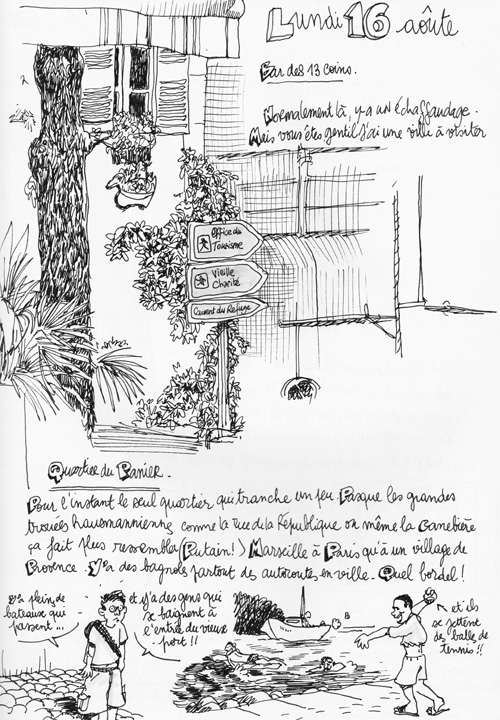 Lundi 16 aoûte
Bar des 13 coins.
Normalement là, y-a un échaffaudage.
Mais vous êtes gentil j'ai une ville à visiter
Office du
Tourisme
Vieille
Charité
Couvent du Refuge
Quartier du Panier.
Pour l'instant le seul quartier qui tranche un peu. Pasque les grandes
trouées hausmannienne comme la rue de la République ou même la Canebière
ça fait plus ressembler (Putain!) Marseille à Paris qu'à un village de
Provence. Y'a des bagnoles partout des autoroutes en ville. Quel bordel!
Y'a pleins de
bateaux qui
passent...
et y'a des gens qui
se baignent à
l'entrée du vieux
port!!
et ils
se jettent
des balle de
tennis!!